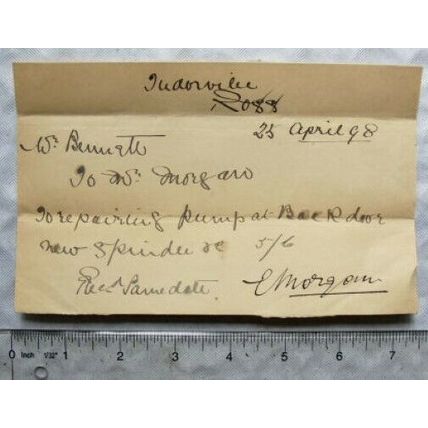 Tudorville
Ross
25 April 98
Mr Bennett
To Mr Morgan
To repairing pump at Back door
new Spindle &c 5/6
Recd Same date
E Morgan
0 Inch 1/32" 1 2 3 4 5 6 7